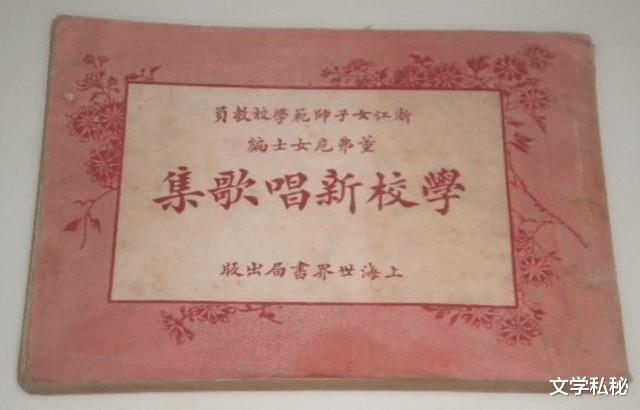 浙江女子師範學校教員
董女士編
學校新唱歌集
上海世界書局出版
文学私秘